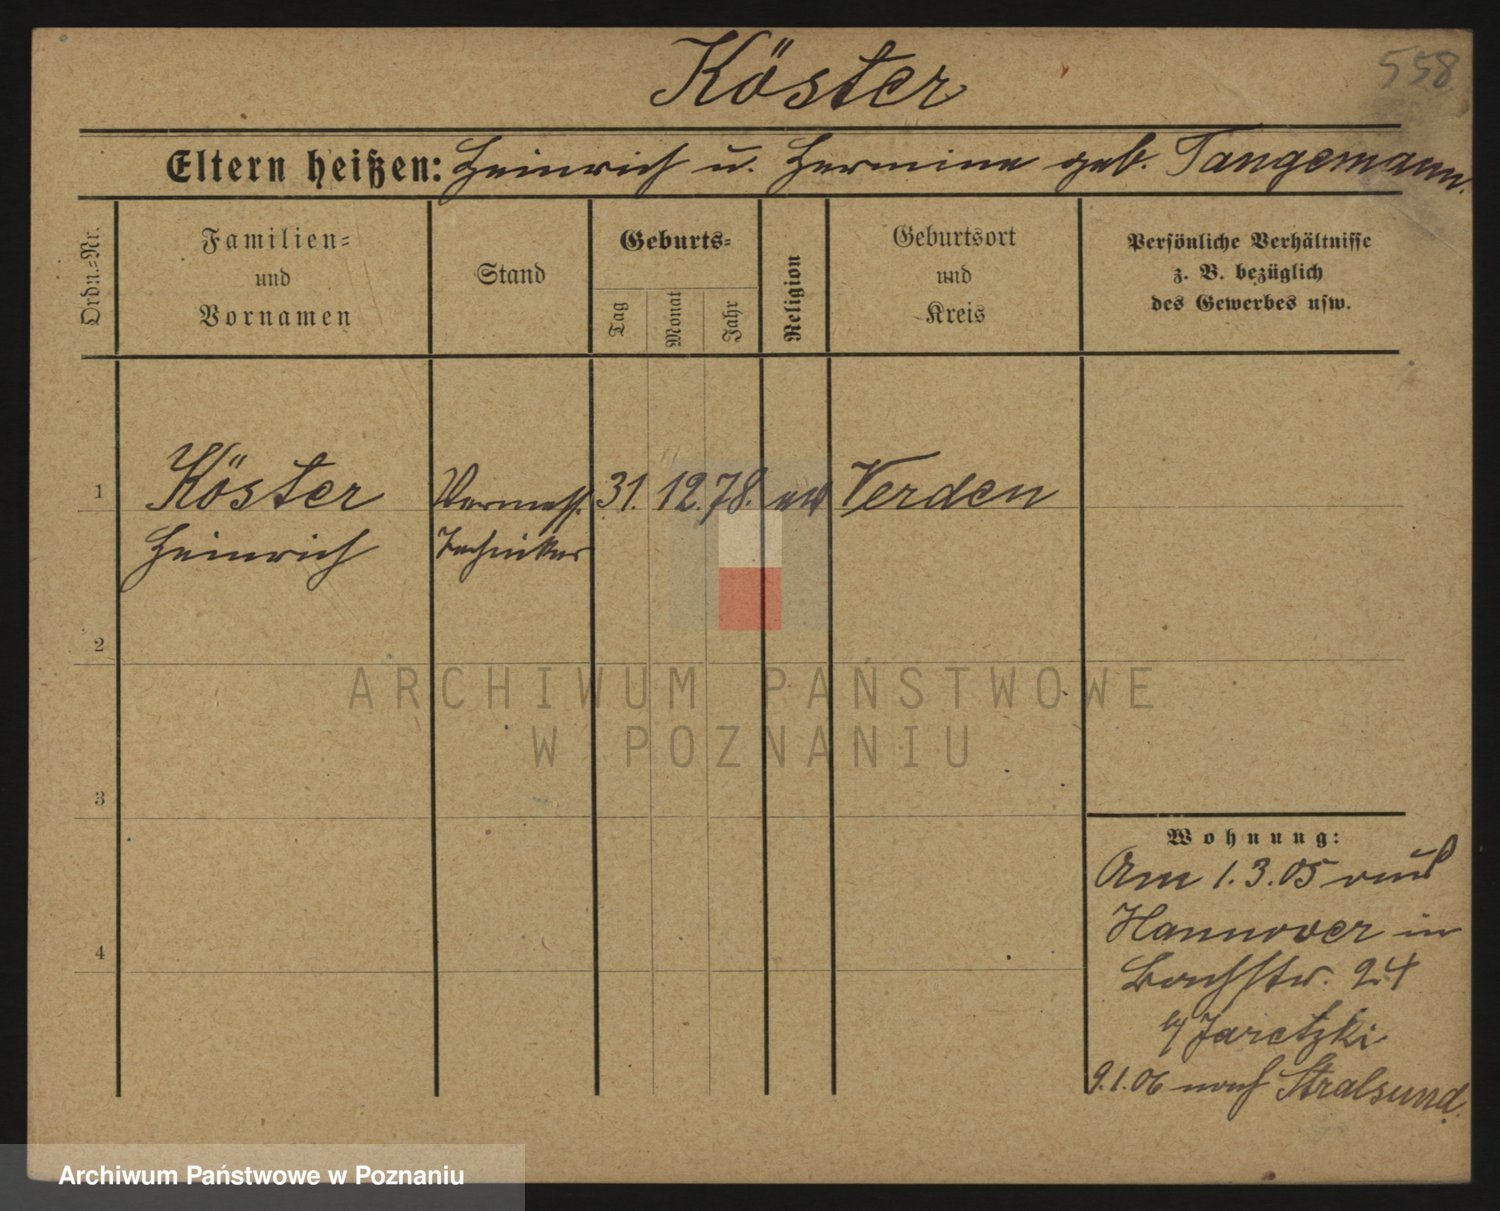 558
Köster
Eltern heißen: Heinrich u. Hermine geb. Tangemann.
Ordn.=Nr.
Familien=
und
Vornamen
Stand
Geburts=
Tag
Monat
Jahr
Religion
Geburtsort
und
Kreis
Persönliche Verhältnisse
z. B. bezüglich
des Gewerbes usw.
1 Köster Vermess. 31. 12. 78. ev Verden
Heinrich Techniker
2
3
4
Wohnung:
Am 1.3.05 aus
Hannover in
Bachstr. 24
b/ Jaretzki
9.1.06 nach Stralsund.
ARCHIWUM PAŃSTWOWE
W POZNANIU
Archiwum Państwowe w Poznaniu